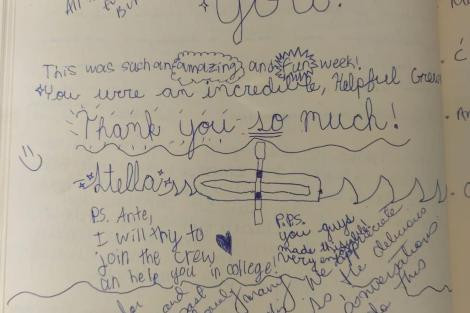 All
But
you!
This was such an amazing and fun week!
You were an incredible, Helpful Crew
Thank you so much!
Stella
P.S. Ante,
I will try to
join the crew
an help you in college!
P.P.S.
you guys
made this
very enjoyable!
We appreciate
many
is the delicious
conversations.
and
this